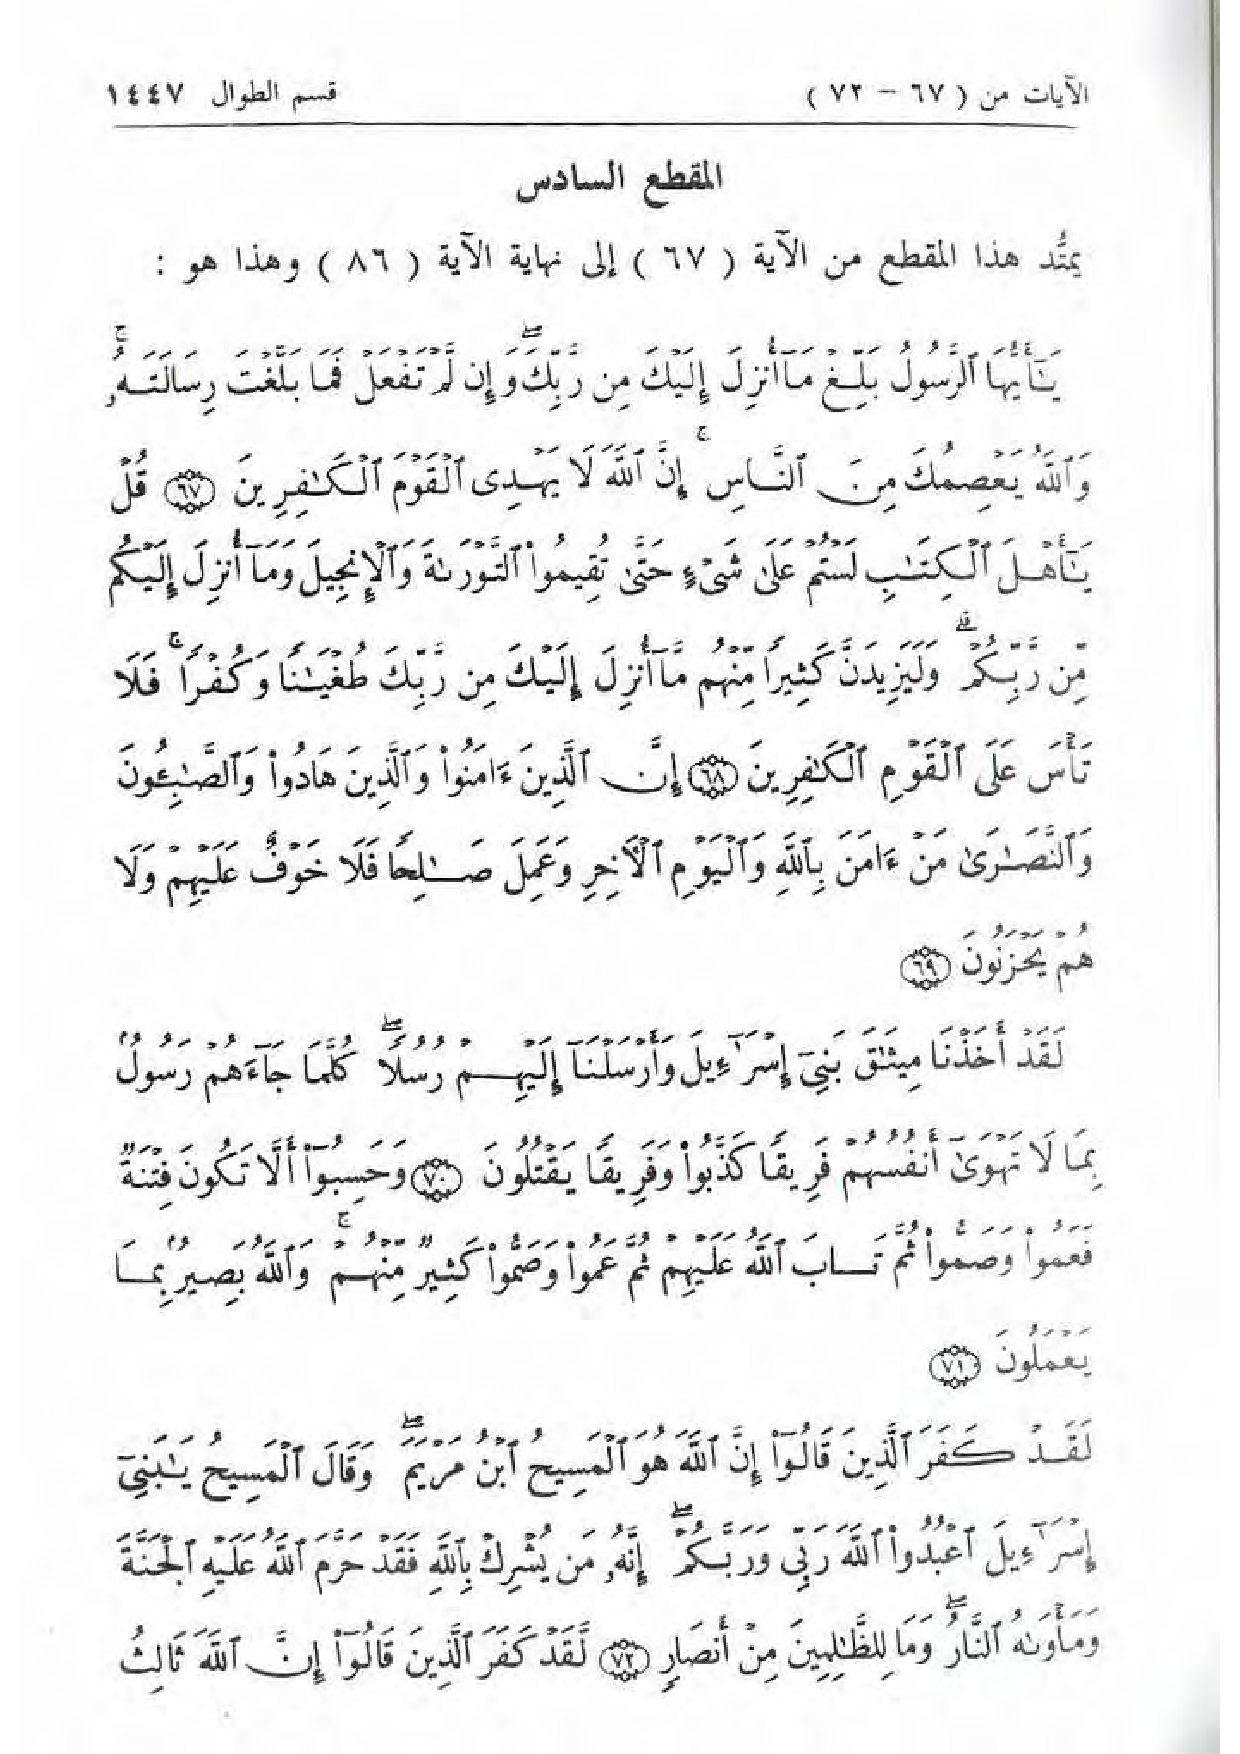 الآيات من ( ٦٧ - ٧٢ ) قسم الطوال ١٤٤٧
المقطع السادس
يمتُّد هذا المقطع من الآية ( ٦٧ ) إلى نهاية الآية ( ٨٦ ) وهذا هو :
يَٰٓأَيُّهَا ٱلرَّسُولُ بَلِّغْ مَآ أُنزِلَ إِلَيْكَ مِن رَّبِّكَ ۖ وَإِن لَّمْ تَفْعَلْ فَمَا بَلَّغْتَ رِسَالَتَهُۥ ۚ
وَٱللَّهُ يَعْصِمُكَ مِنَ ٱلنَّاسِ ۚ إِنَّ ٱللَّهَ لَا يَهْدِى ٱلْقَوْمَ ٱلْكَٰفِرِينَ ٦٧ قُلْ
يَٰٓأَهْلَ ٱلْكِتَٰبِ لَسْتُمْ عَلَىٰ شَىْءٍ حَتَّىٰ تُقِيمُوا۟ ٱلتَّوْرَىٰةَ وَٱلْإِنجِيلَ وَمَآ أُنزِلَ إِلَيْكُم
مِّن رَّبِّكُمْ ۗ وَلَيَزِيدَنَّ كَثِيرًا مِّنْهُم مَّآ أُنزِلَ إِلَيْكَ مِن رَّبِّكَ طُغْيَٰنًا وَكُفْرًا ۚ فَلَا
تَأْسَ عَلَى ٱلْقَوْمِ ٱلْكَٰفِرِينَ ٦٨ إِنَّ ٱلَّذِينَ ءَامَنُوا۟ وَٱلَّذِينَ هَادُوا۟ وَٱلصَّٰبِـُٔونَ
وَٱلنَّصَٰرَىٰ مَنْ ءَامَنَ بِٱللَّهِ وَٱلْيَوْمِ ٱلْءَاخِرِ وَعَمِلَ صَٰلِحًا فَلَا خَوْفٌ عَلَيْهِمْ وَلَا
هُمْ يَحْزَنُونَ ٦٩
لَقَدْ أَخَذْنَا مِيثَٰقَ بَنِىٓ إِسْرَٰٓءِيلَ وَأَرْسَلْنَآ إِلَيْهِمْ رُسُلًا ۖ كُلَّمَا جَآءَهُمْ رَسُولٌۢ
بِمَا لَا تَهْوَىٰٓ أَنفُسُهُمْ فَرِيقًا كَذَّبُوا۟ وَفَرِيقًا يَقْتُلُونَ ٧٠ وَحَسِبُوٓا۟ أَلَّا تَكُونَ فِتْنَةٌ
فَعَمُوا۟ وَصَمُّوا۟ ثُمَّ تَابَ ٱللَّهُ عَلَيْهِمْ ثُمَّ عَمُوا۟ وَصَمُّوا۟ كَثِيرٌ مِّنْهُمْ ۚ وَٱللَّهُ بَصِيرٌۢ بِمَا
يَعْمَلُونَ ٧١
لَقَدْ كَفَرَ ٱلَّذِينَ قَالُوٓا۟ إِنَّ ٱللَّهَ هُوَ ٱلْمَسِيحُ ٱبْنُ مَرْيَمَ ۖ وَقَالَ ٱلْمَسِيحُ يَٰبَنِىٓ
إِسْرَٰٓءِيلَ ٱعْبُدُوا۟ ٱللَّهَ رَبِّى وَرَبَّكُمْ ۖ إِنَّهُۥ مَن يُشْرِكْ بِٱللَّهِ فَقَدْ حَرَّمَ ٱللَّهُ عَلَيْهِ ٱلْجَنَّةَ
وَمَأْوَىٰهُ ٱلنَّارُ ۖ وَمَا لِلظَّٰلِمِينَ مِنْ أَنصَارٍ ٧٢ لَّقَدْ كَفَرَ ٱلَّذِينَ قَالُوٓا۟ إِنَّ ٱللَّهَ ثَالِثُ